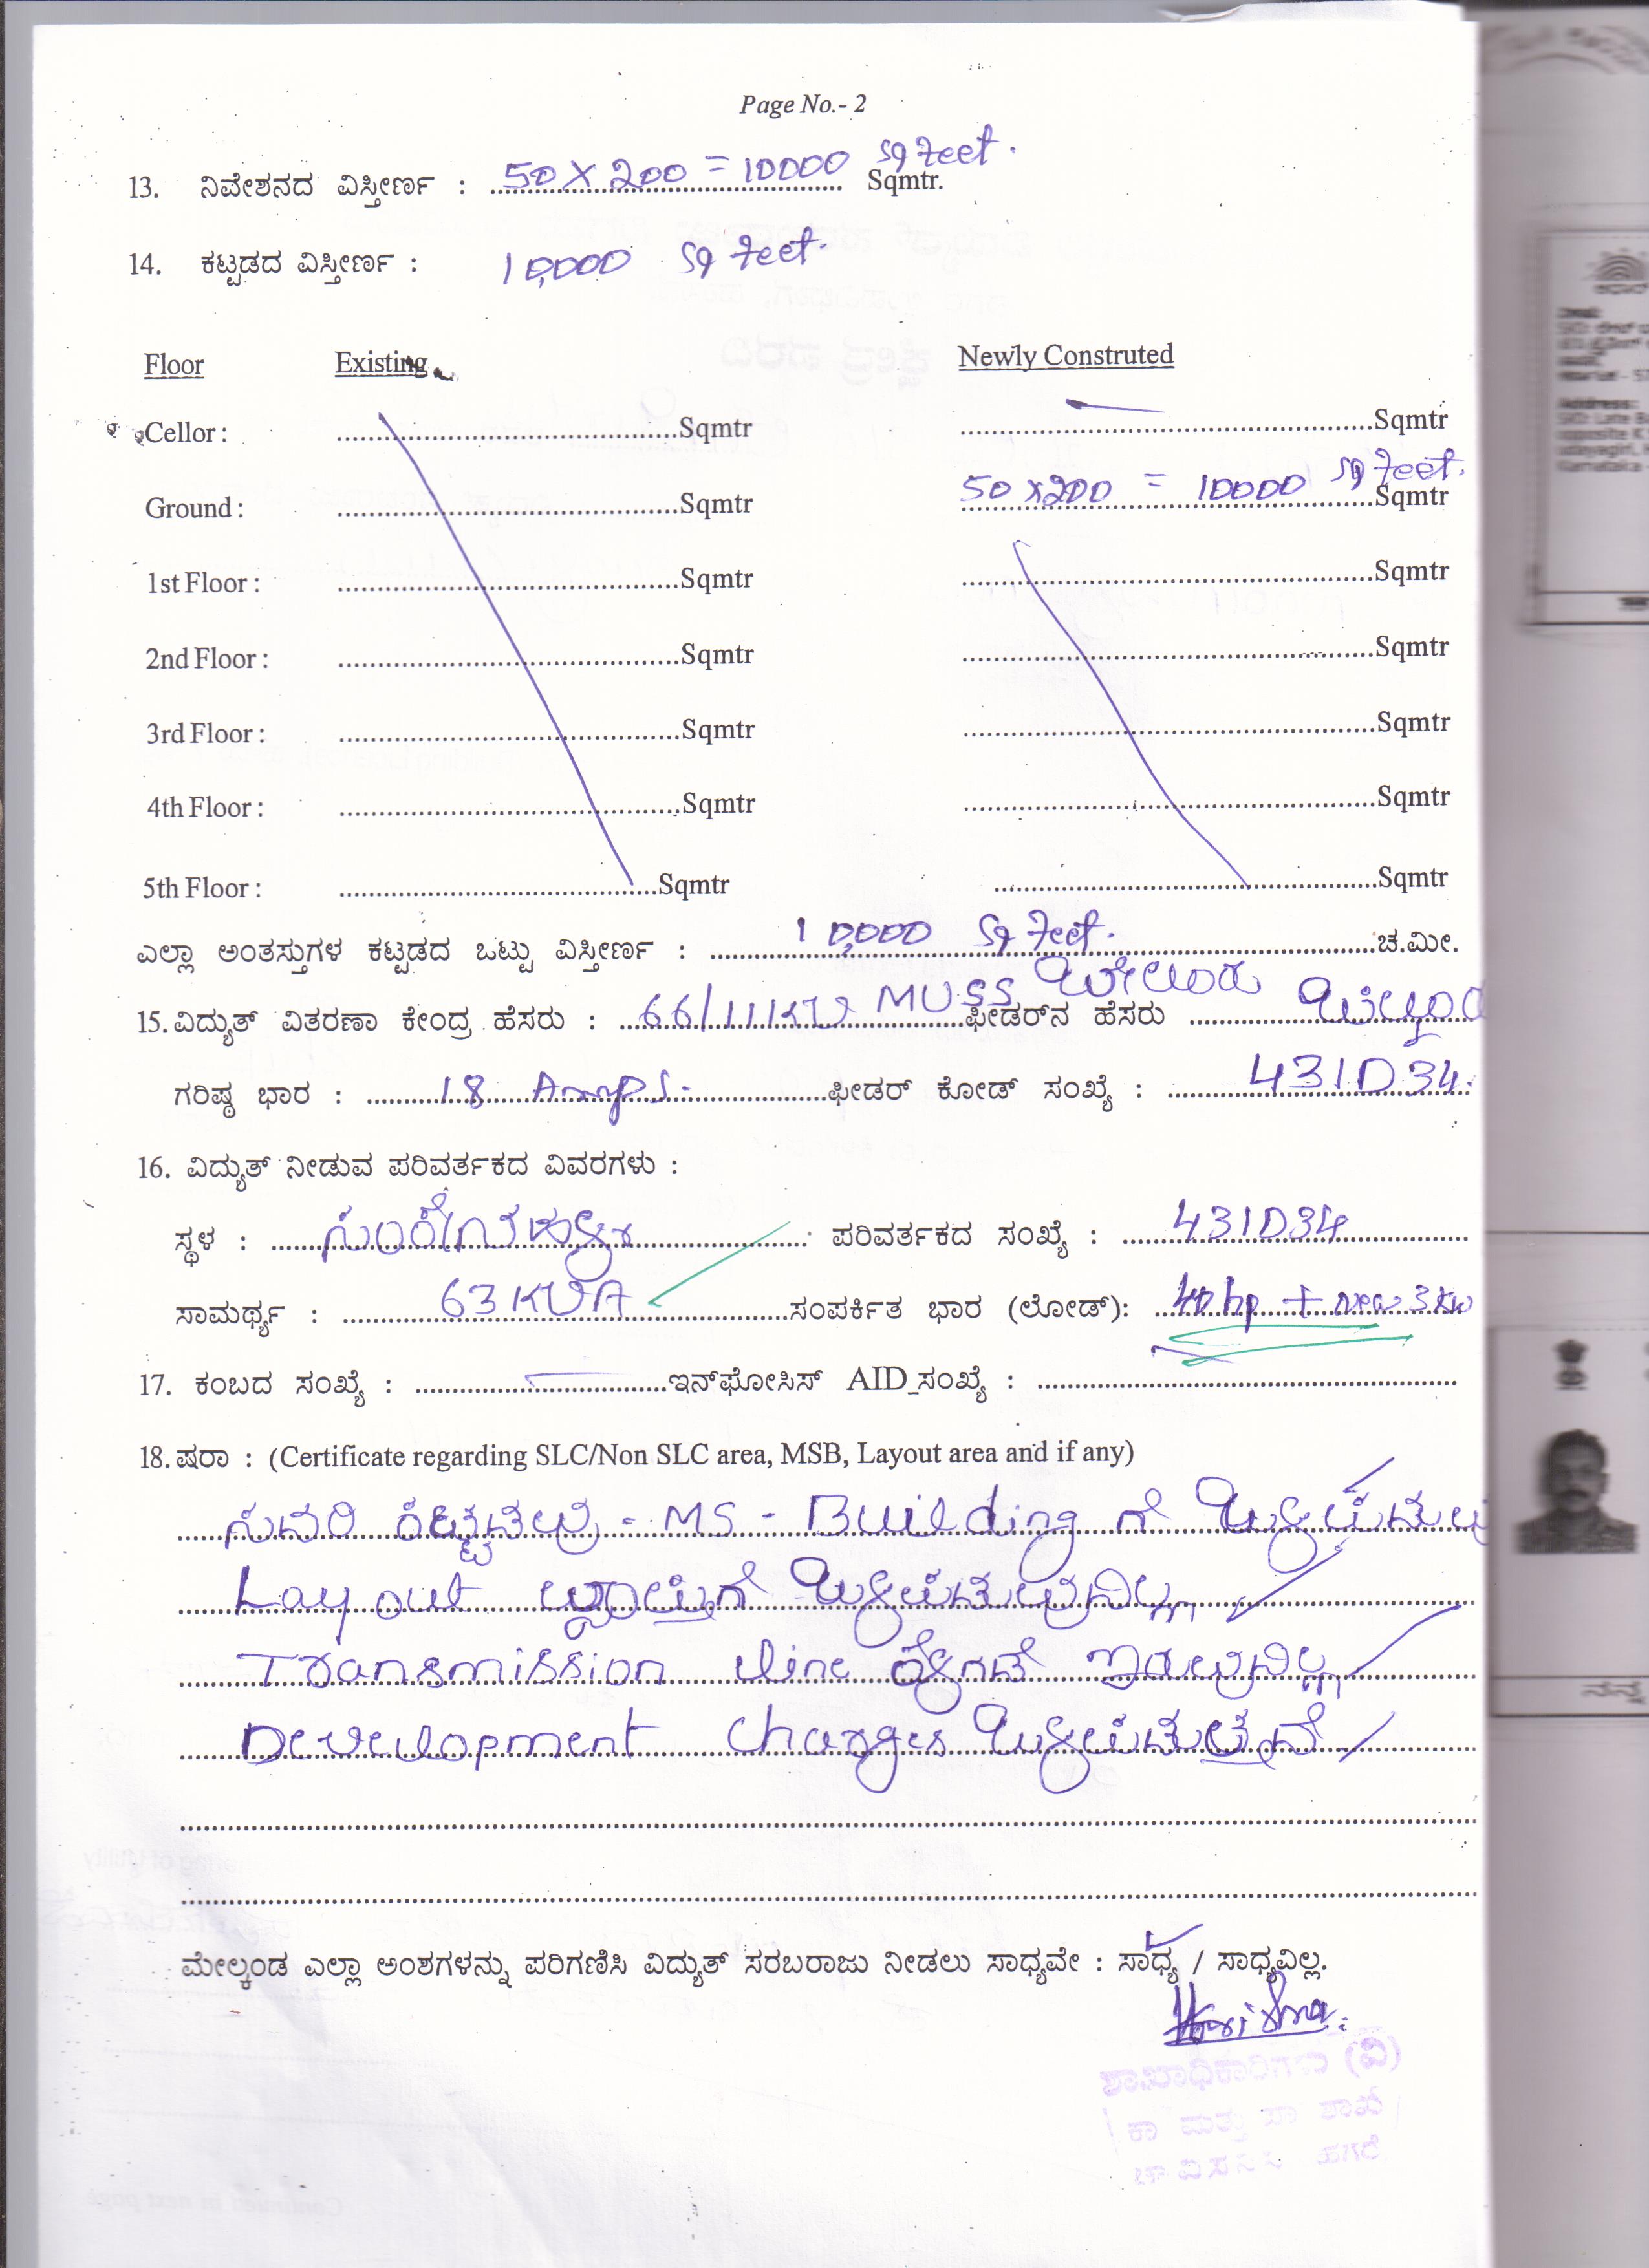 Page No.- 2
13. ನಿವೇಶನದ ವಿಸ್ತೀರ್ಣ : 50 X 200 = 10000 sq feet. Sqmtr.
14. ಕಟ್ಟಡದ ವಿಸ್ತೀರ್ಣ : 10,000 sq feet.
Floor Existing Newly Construted
Cellor : ........Sqmtr ........Sqmtr
Ground : ........Sqmtr 50 x 200 = 10000 sq feet. Sqmtr
1st Floor : ........Sqmtr ........Sqmtr
2nd Floor : ........Sqmtr ........Sqmtr
3rd Floor : ........Sqmtr ........Sqmtr
4th Floor : ........Sqmtr ........Sqmtr
5th Floor : ........Sqmtr ........Sqmtr
ಎಲ್ಲಾ ಅಂತಸ್ತುಗಳ ಕಟ್ಟಡದ ಒಟ್ಟು ವಿಸ್ತೀರ್ಣ : 10,000 sq feet. ಚ.ಮೀ.
15. ವಿದ್ಯುತ್ ವಿತರಣಾ ಕೇಂದ್ರ ಹೆಸರು : 66/11KV MUSS ಬೇಲೂರು ಫೀಡರ್‌ನ ಹೆಸರು
ಗರಿಷ್ಠ ಭಾರ : 18 Amps. ಫೀಡರ್ ಕೋಡ್ ಸಂಖ್ಯೆ : 431D34.
16. ವಿದ್ಯುತ್ ನೀಡುವ ಪರಿವರ್ತಕದ ವಿವರಗಳು :
ಸ್ಥಳ : ಪರಿವರ್ತಕದ ಸಂಖ್ಯೆ : 431D34
ಸಾಮರ್ಥ್ಯ : 63 KVA ಸಂಪರ್ಕಿತ ಭಾರ (ಲೋಡ್): 40 hp + new 3 kw
17. ಕಂಬದ ಸಂಖ್ಯೆ : ........ಇನ್‌ಫೋಸಿಸ್ AID_ಸಂಖ್ಯೆ : ........
18. ಷರಾ : (Certificate regarding SLC/Non SLC area, MSB, Layout area and if any)
ಸದರಿ ಕಟ್ಟಡವು - MS - Building ಗೆ
Layout ವ್ಯಾಪ್ತಿಗೆ ಒಳಪಡುವುದಿಲ್ಲ
Transmission line ಕೆಳಗಡೆ ಇರುವುದಿಲ್ಲ
Development charges ಒಳಪಡುತ್ತದೆ
ಮೇಲ್ಕಂಡ ಎಲ್ಲಾ ಅಂಶಗಳನ್ನು ಪರಿಗಣಿಸಿ ವಿದ್ಯುತ್ ಸರಬರಾಜು ನೀಡಲು ಸಾಧ್ಯವೇ : ಸಾಧ್ಯ / ಸಾಧ್ಯವಿಲ್ಲ.
ಶಾಖಾಧಿಕಾರಿಗಳು (ವಿ)
ಕಾ ಮತ್ತು ಪಾ ಶಾಖೆ
ಚಾವಿಸನಿನಿ ಹಗರೆ